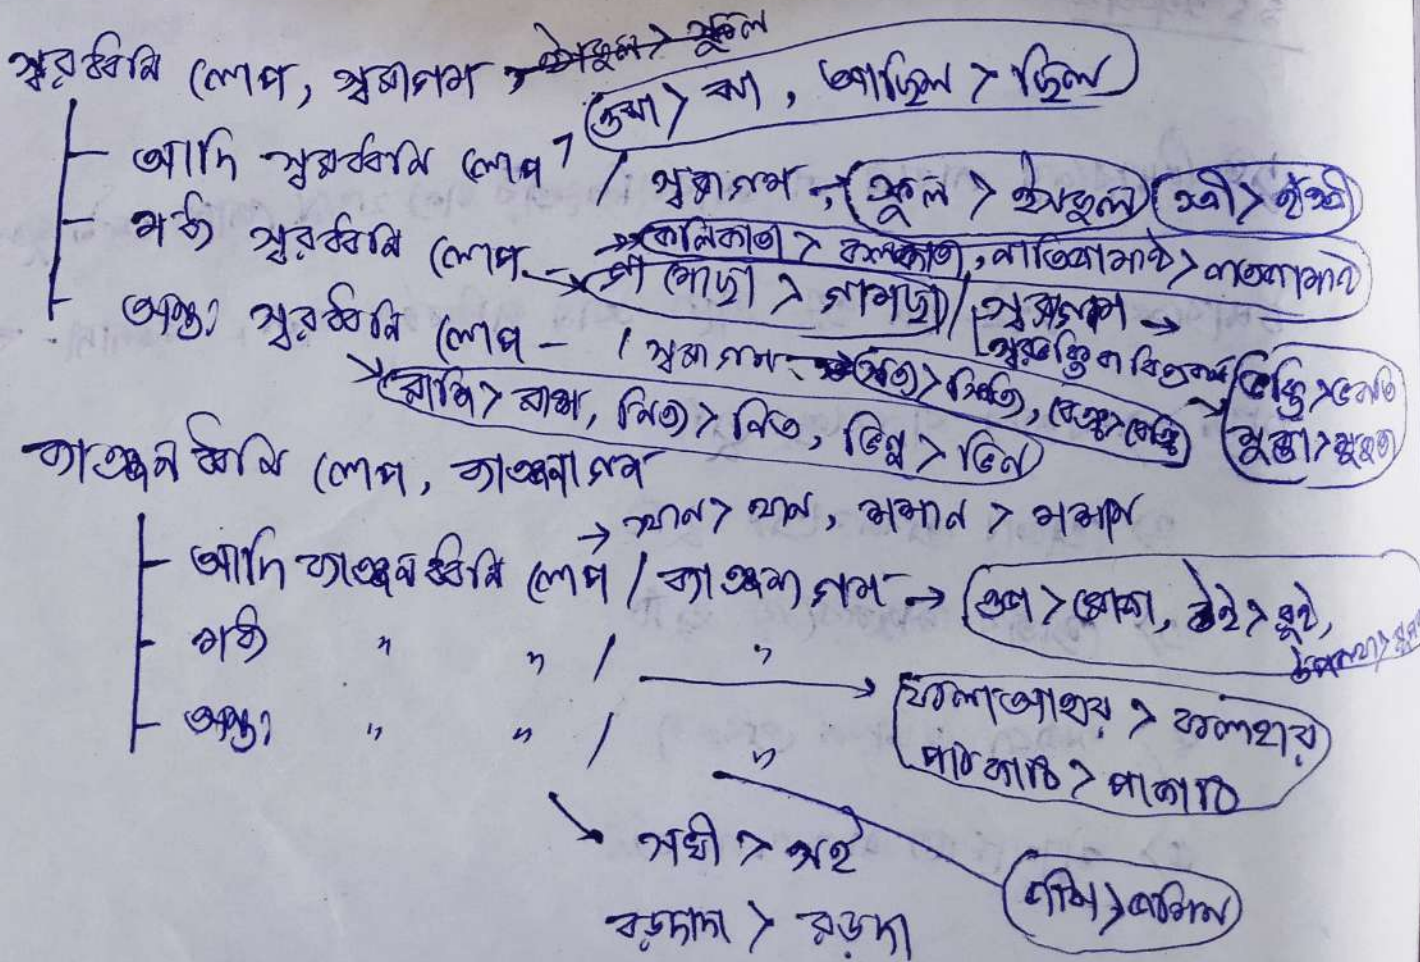 স্বরধ্বনি লোপ, স্বরাগম, ইস্কুল > স্কুল
ওঝা > ঝা, আছিল > ছিল
আদি স্বরধ্বনি লোপ / স্বরাগম → স্কুল > ইস্কুল স্ত্রী > ইস্ত্রী
মধ্য স্বরধ্বনি লোপ - → কলিকাতা > কলকাতা, নাতিজামাই > নাতজামাই
গামোছা > গামছা / স্বরাগম →
স্বরভক্তি বা বিপ্রকর্ষ ভক্তি > ভকতি
মুক্তা > মুকুতা
অন্ত্য স্বরধ্বনি লোপ - / স্বরাগম - সত্য > সত্যি, বেঞ্চ > বেঞ্চি
রাশি > রাশ, নিত্য > নিত, ভিন্ন > ভিন
ব্যাঞ্জনধ্বনি লোপ, ব্যাঞ্জনাগম
→ স্থান > থান, শ্মশান > মশান
আদি ব্যাঞ্জনধ্বনি লোপ / ব্যাঞ্জনাগম → ওঝা > রোজা, উই > রুই,
মধ্য " " / "
ফলাআহার > ফলাহার
পাটকাঠি > পাকাঠি
অন্ত্য " " / "
সখী > সই
বড়দাদা > বড়দা